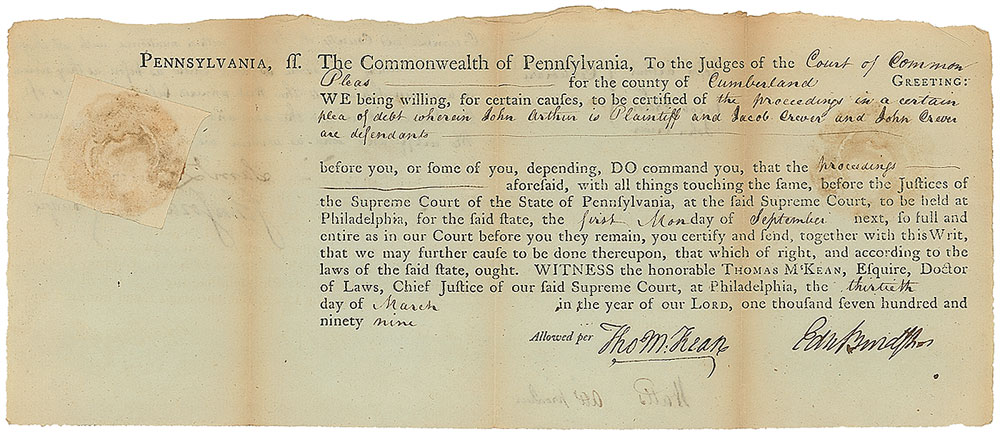 PENNSYLVANIA, ſſ. The Commonwealth of Pennſylvania, To the Judges of the Court of Common
Pleas for the county of Cumberland GREETING:
WE being willing, for certain cauſes, to be certified of the proceedings in a certain
plea of debt wherein John Arthur is Plaintiff and Jacob Crever and John Crever
are defendants
before you, or ſome of you, depending, DO command you, that the proceedings
aforeſaid, with all things touching the ſame, before the Juſtices of
the Supreme Court of the State of Pennſylvania, at the ſaid Supreme Court, to be held at
Philadelphia, for the ſaid ſtate, the first Monday of September next, ſo full and
entire as in our Court before you they remain, you certify and ſend, together with this Writ,
that we may further cauſe to be done thereupon, that which of right, and according to the
laws of the ſaid ſtate, ought. WITNESS the honorable THOMAS M'KEAN, Eſquire, Doctor
of Laws, Chief Juſtice of our ſaid Supreme Court, at Philadelphia, the thirtieth
day of March in the year of our LORD, one thouſand ſeven hundred and
ninety nine
Allowed per Tho M:Kean Edw Burd
Watts